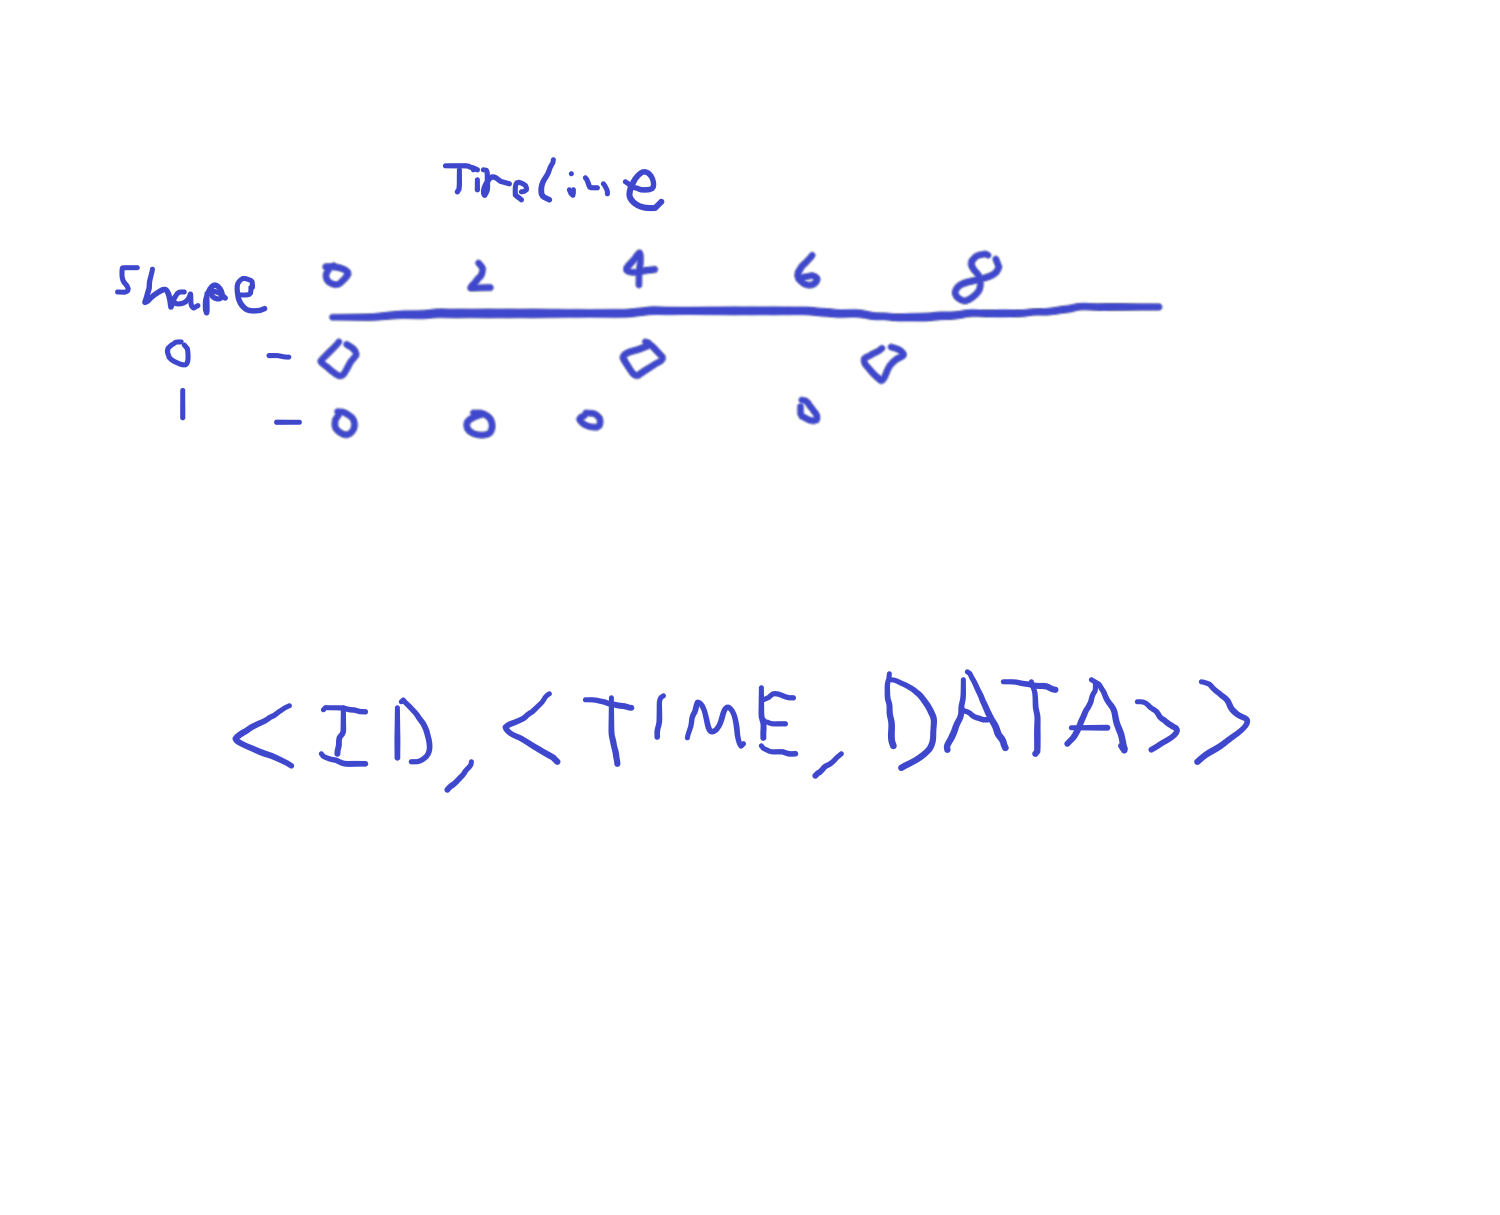 Timeline
Shape 0 2 4 6 8
0 -
1 -
<ID, <TIME, DATA>>